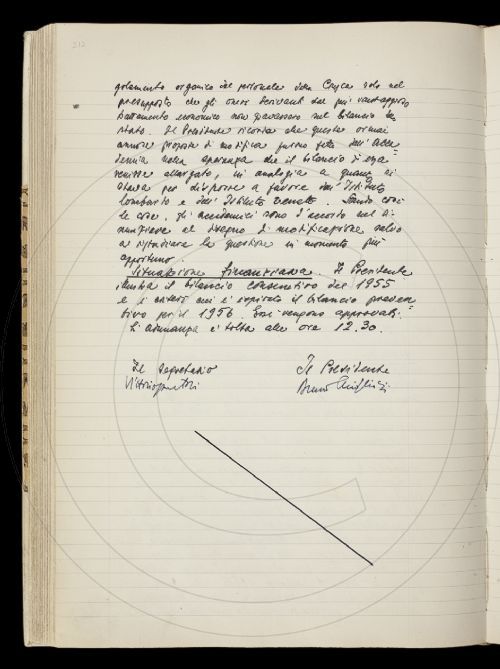 212
golamento organico del personale della Crusca solo nel
presupposto che gli oneri derivanti dal più vantaggioso
trattamento economico non gravassero nel bilancio
stato. Il Presidente ricorda che queste ormai
annose proposte di modifica furono fatte dall'Acca=
demia nella speranza che il bilancio di essa
venisse allargato, in analogia a quanto si
stava per disporre a favore dell'Istituto
lombardo e dell'Istituto Veneto. Stando così
le cose, gli accademici sono d'accordo nel ri=
nunziare al disegno di modificazione salvo
a riprendere la questione in momento più
opportuno.
Situazione finanziaria. Il Presidente
illustra il bilancio consuntivo del 1955
e i criteri cui è ispirato il bilancio preven
tivo per il 1956. Essi vengono approvati.
L'adunanza è tolta alle ore 12.30.
Il Segretario
Il Presidente
Bruno Migliorini